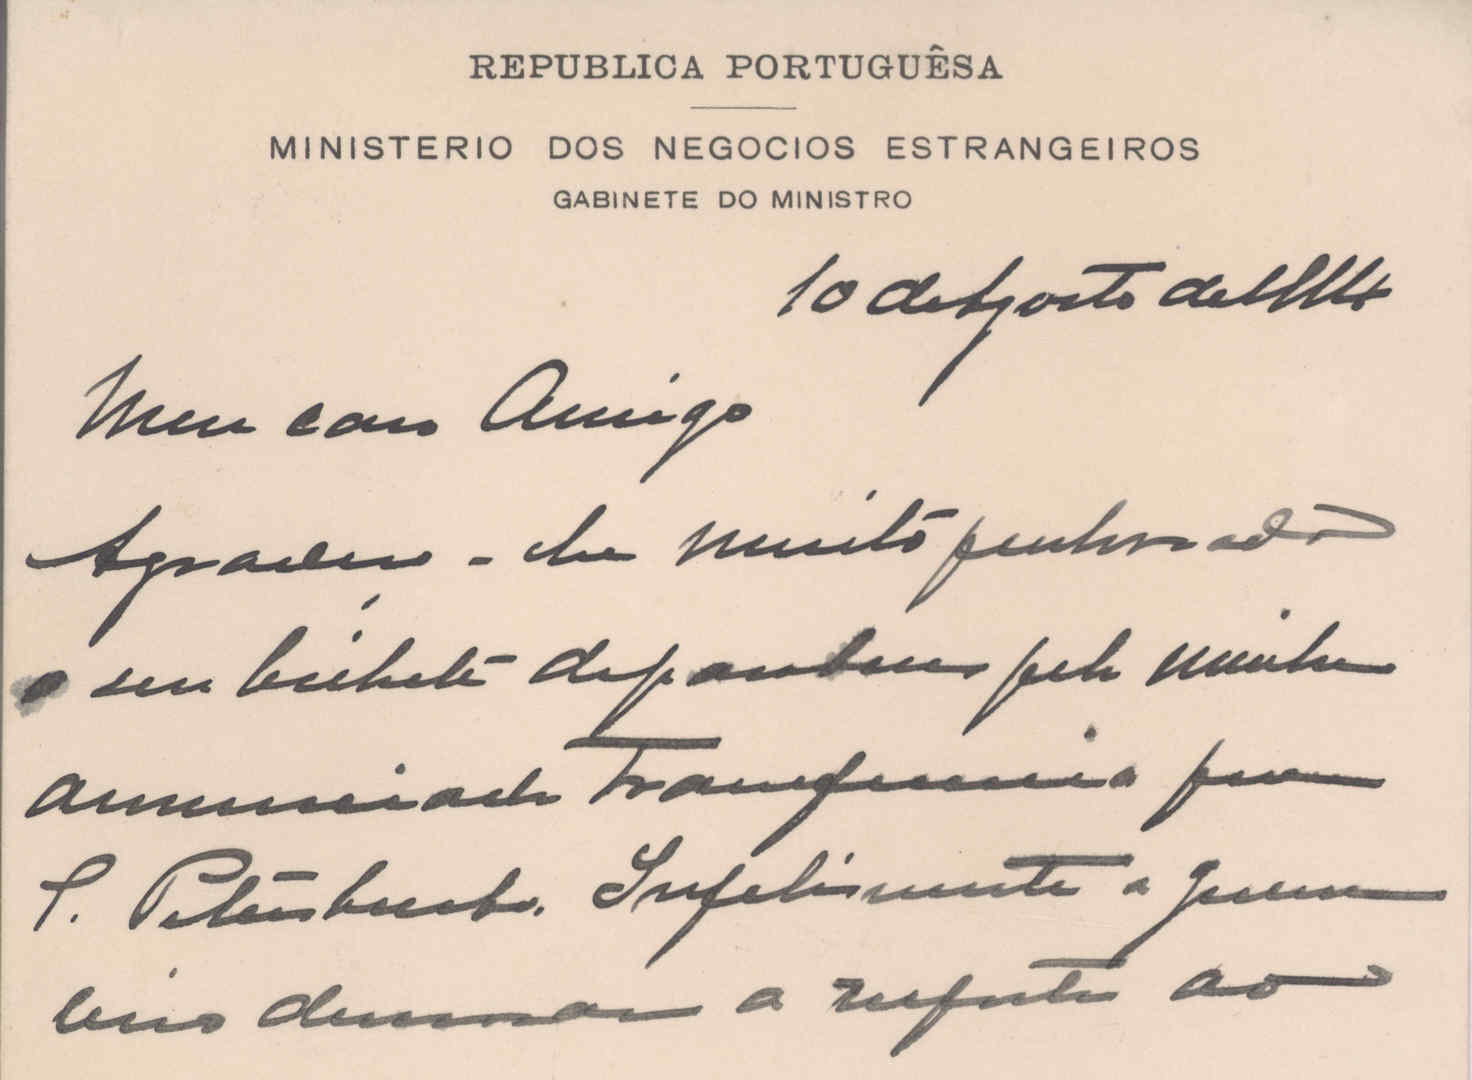 REPUBLICA PORTUGUÊSA
MINISTERIO DOS NEGOCIOS ESTRANGEIROS
GABINETE DO MINISTRO
10 de Agosto de 1914
Meu caro Amigo
Agradeço-lhe muito penhorado
o seu bilhete de parabens pela minha
annunciada transferencia para
S. Petersburgo. Infelizmente a guerra
veio demorar a resposta ao